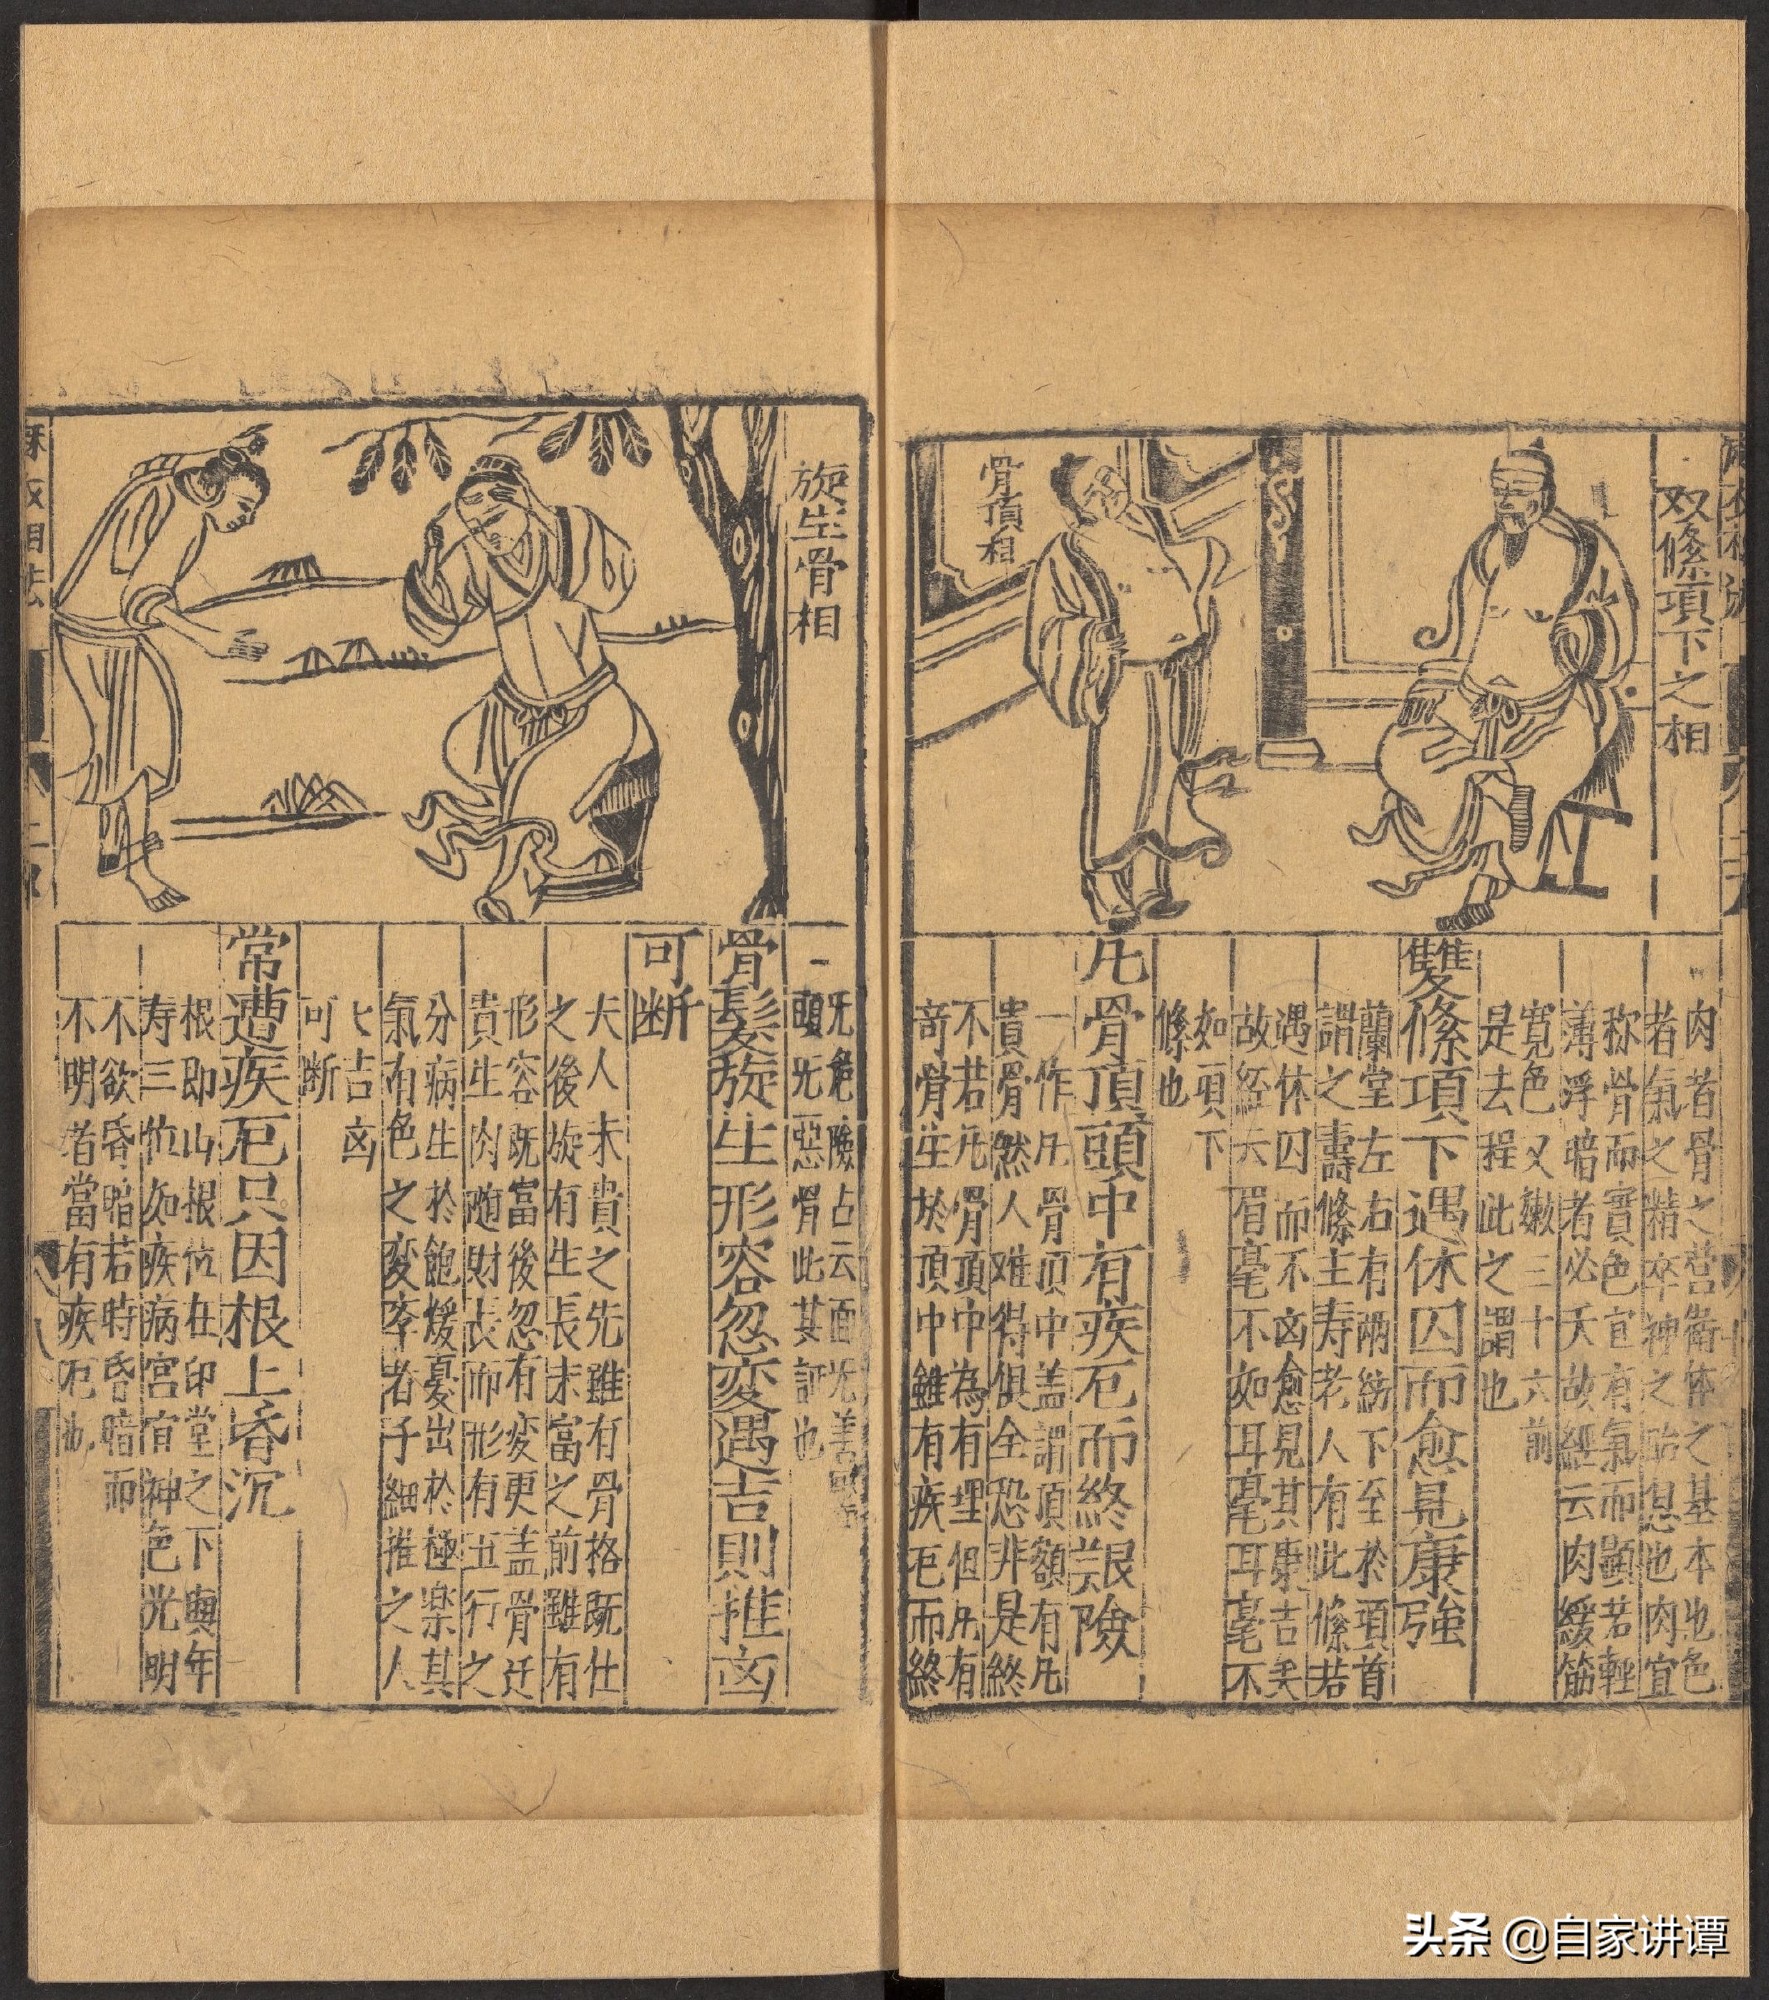 双絛項下之相
骨頂相
肉者骨之營衛体之基本也色
者氣之精卒神之胎息也肉宜
称骨而實色宜有氣而顯若輕
薄浮暗者必夭故經云肉緩筋
寛色又嫩三十六前
是去程此之謂也
雙絛項下遇休囚而愈見康強
蘭堂左右有兩紋下至於項首
謂之壽絛主寿老人有此絛若
遇休囚而不凶愈見其康吉矣
故經云眉毫不如耳毫耳毫不
如項下
絛也
凡骨頂頭中有疾厄而終無艱險
一作凡骨頂中盖謂頂額有凡
貴骨然人难得俱全恐非是終
不若凡骨頂中為有埋但凡有
竒骨生於頂中雖有疾厄而終
旋生骨相
无危險占云面无善
頭无惡骨此其証也
骨髮旋生形容忽变遇吉則推凶
可断
夫人未貴之先雖有骨格既仕
之後旋有生長未富之前雖有
形容既富後忽有变更盖骨迁
貴生肉随財長而形有五行之
分病生於飽煖憂出於極楽其
氣有色之变李者子細推之人
七吉凶
可断
常遭疾厄只因根上昏沉
根即山根位在印堂之下與年
寿三位如疾病宫宜神色光明
不欲昏暗若時昏暗而
不明者當有疾厄也
麻衣相法
头条 @自家讲谭